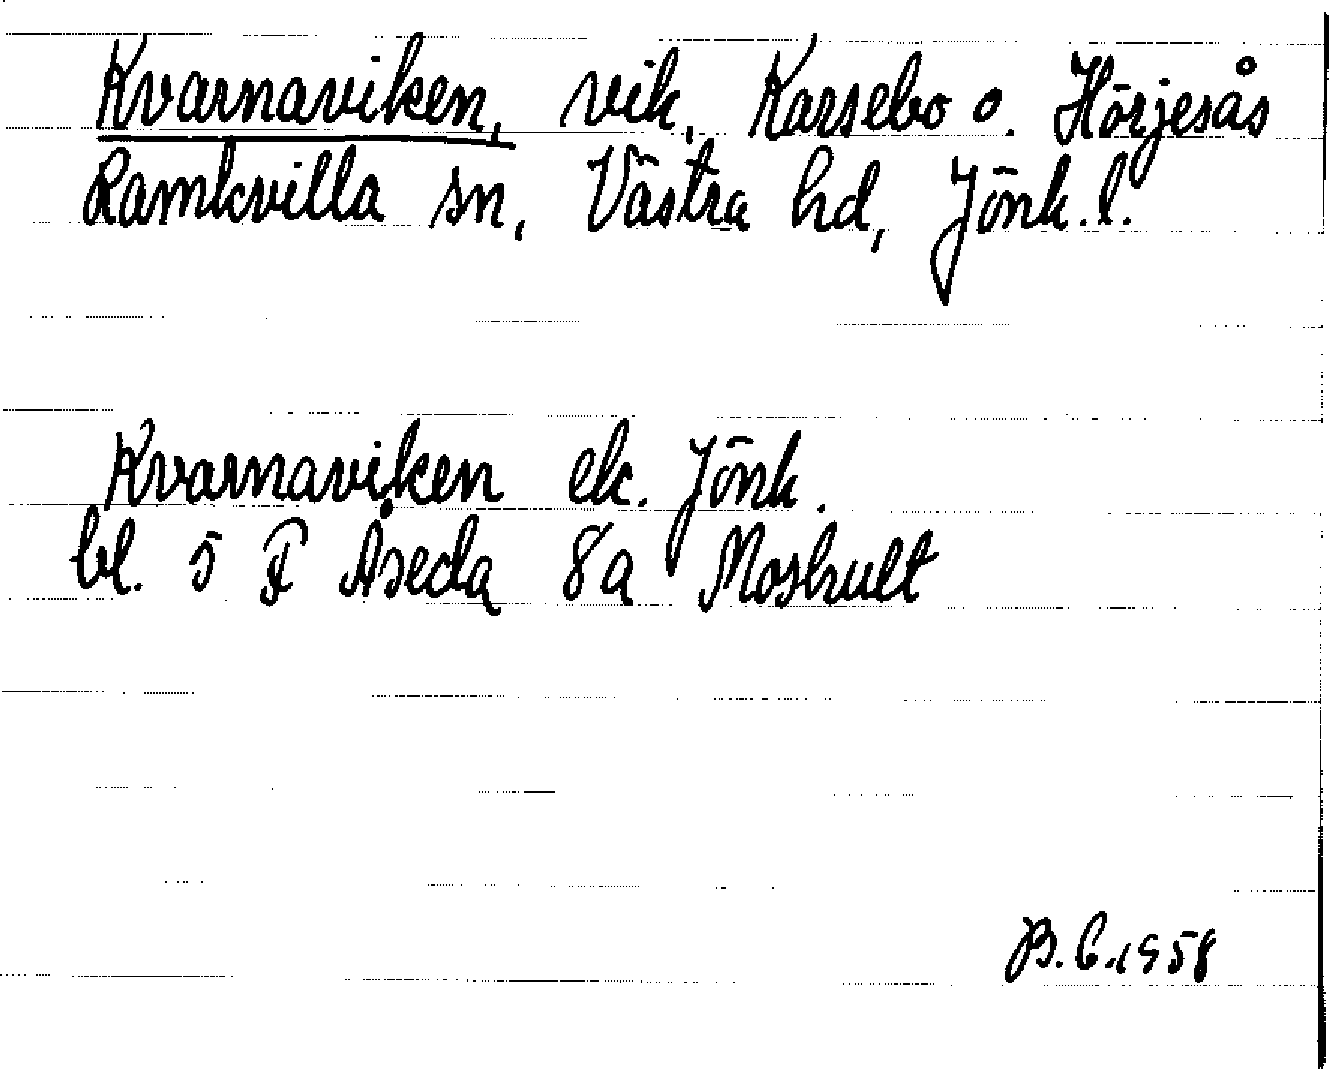 Kvarnaviken, vik, Karsebo o. Hörjesås
Ramkvilla sn, Västra hd, Jönk.l.
Kvarnaviken ek. Jönk.
bl. 5 F Åseda 8a Moshult
B.C.1958